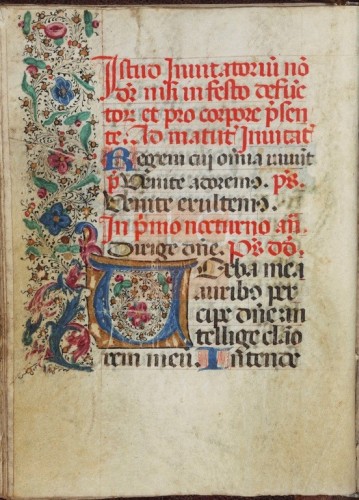 Istud Inuitatoriũ nõ
dr̃ nisi in festo defũc
tor̃ et pro corpore p̃sen
te. Ad matut̃ Inuitat̃
Regem cui oĩa viuũt
p̃ Venite adoremꝰ. p̃s.
Venite exultemꝰ.
In p̃mo nocturno añ.
Dirige dñe. P̃s dd̃.
Verba mea
auribus per
cipe dñe in
tellige clão
rem meũ. Intende